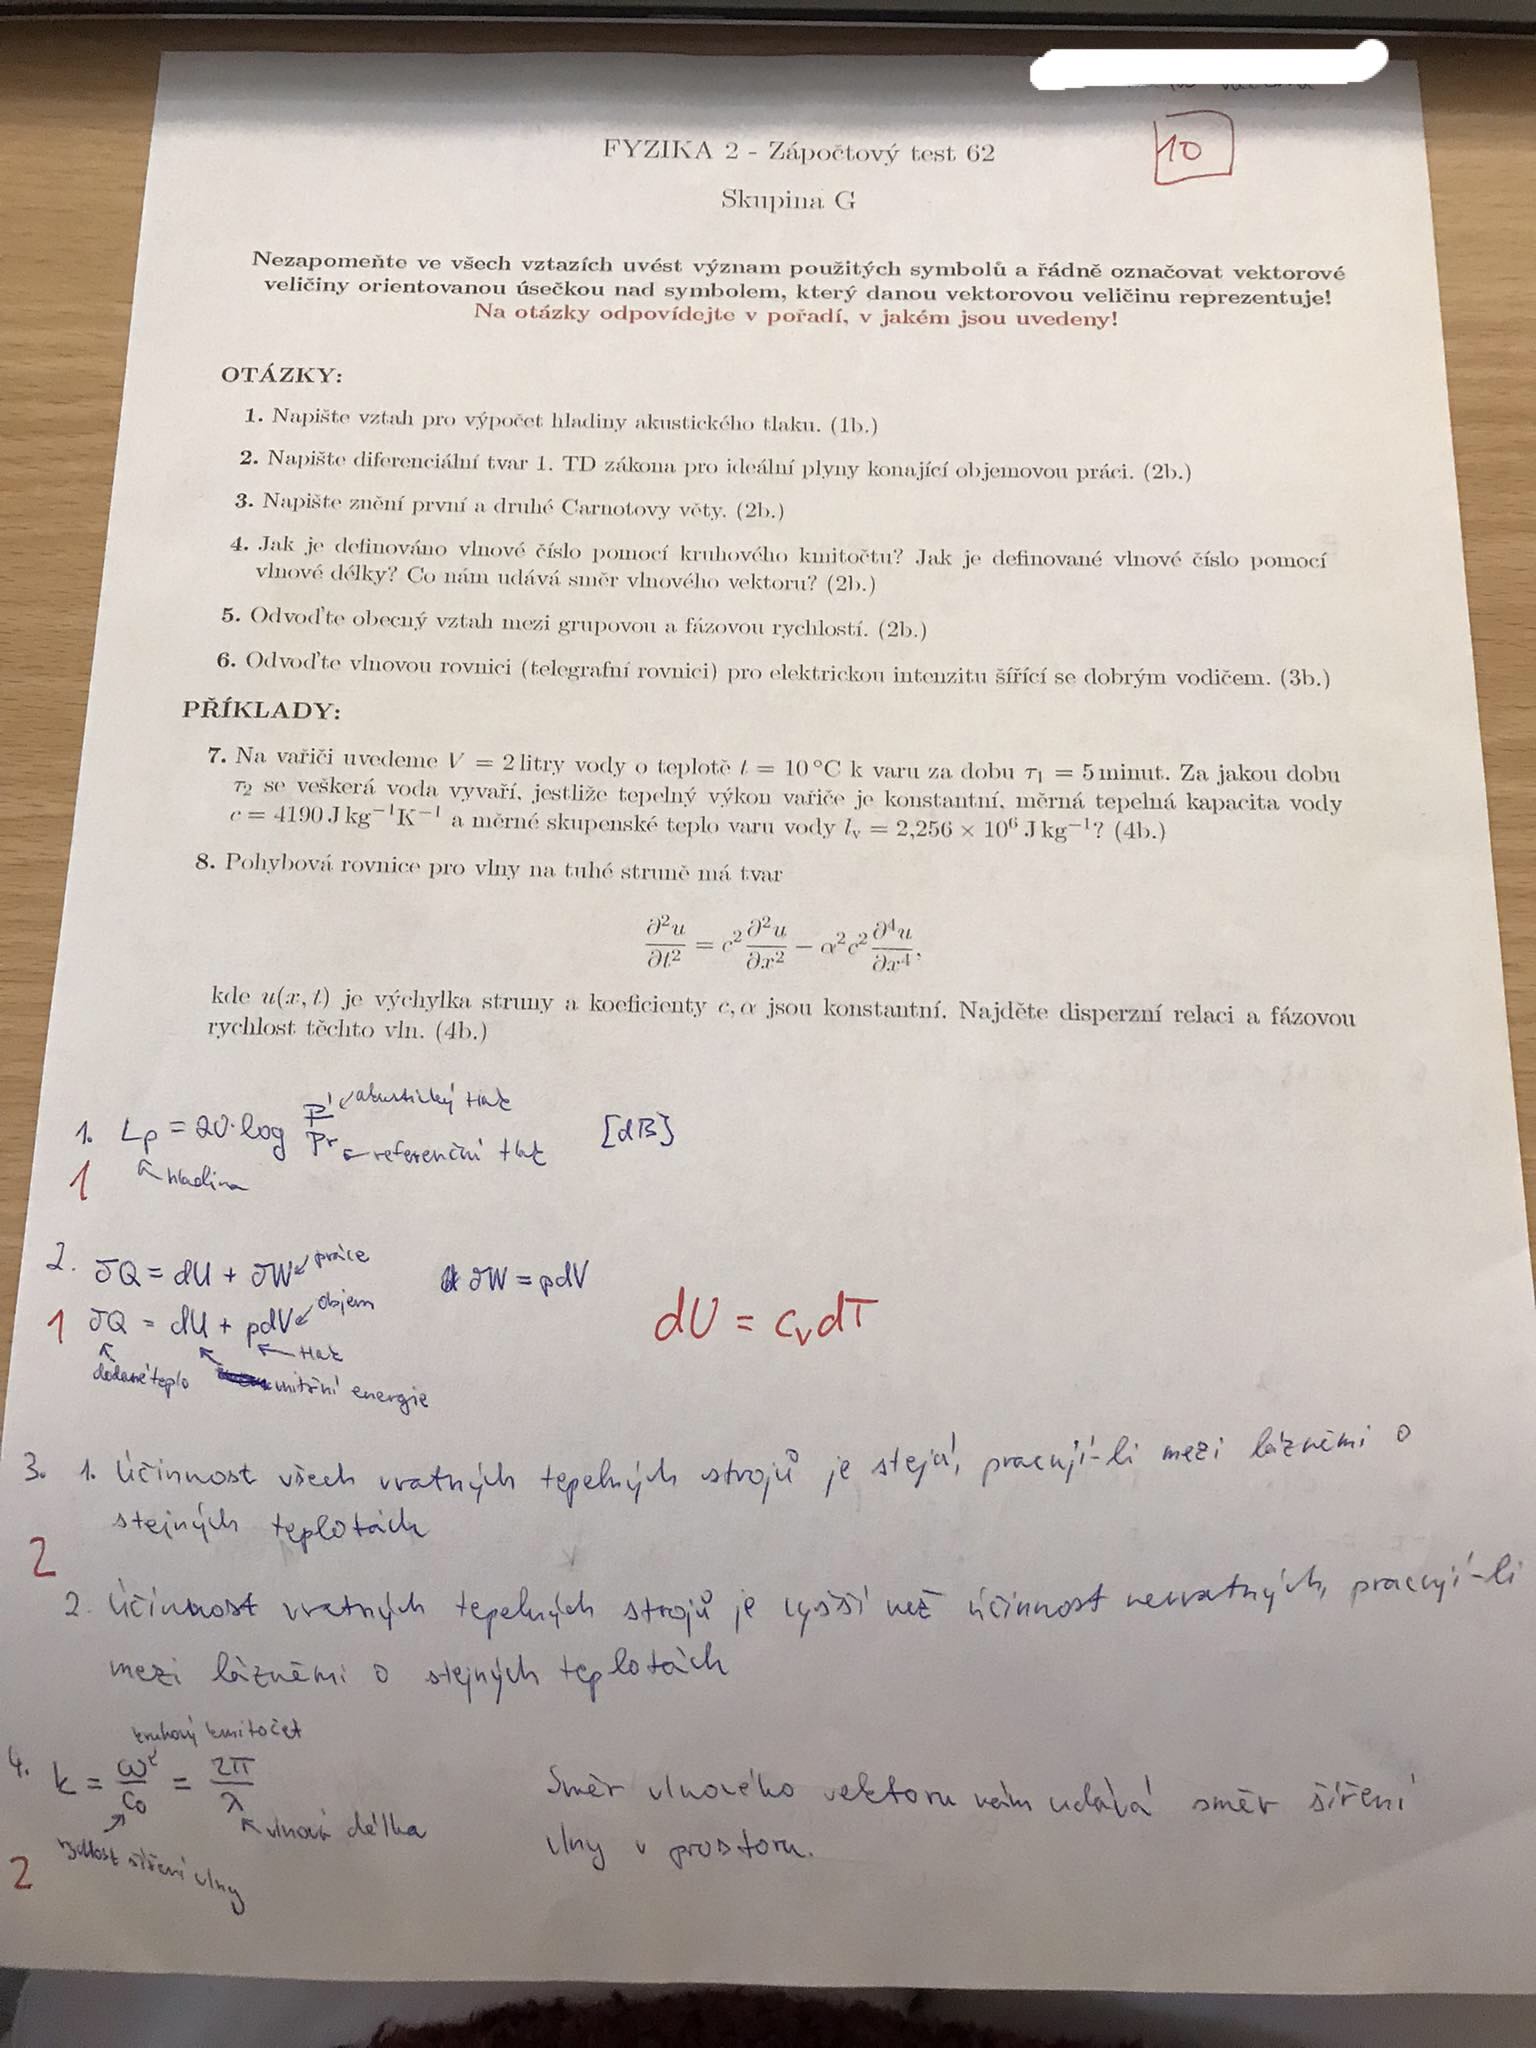 10
FYZIKA 2 - Zápočtový test 62
Skupina G
Nezapomeňte ve všech vztazích uvést význam použitých symbolů a řádně označovat vektorové
veličiny orientovanou úsečkou nad symbolem, který danou vektorovou veličinu reprezentuje!
Na otázky odpovídejte v pořadí, v jakém jsou uvedeny!
OTÁZKY:
1. Napište vztah pro výpočet hladiny akustického tlaku. (1b.)
2. Napište diferenciální tvar 1. TD zákona pro ideální plyny konající objemovou práci. (2b.)
3. Napište znění první a druhé Carnotovy věty. (2b.)
4. Jak je definováno vlnové číslo pomocí kruhového kmitočtu? Jak je definované vlnové číslo pomocí
vlnové délky? Co nám udává směr vlnového vektoru? (2b.)
5. Odvoďte obecný vztah mezi grupovou a fázovou rychlostí. (2b.)
6. Odvoďte vlnovou rovnici (telegrafní rovnici) pro elektrickou intenzitu šířící se dobrým vodičem. (3b.)
PŘÍKLADY:
7. Na vařiči uvedeme V = 2 litry vody o teplotě t = 10 °C k varu za dobu τ₁ = 5 minut. Za jakou dobu
τ₂ se veškerá voda vyvaří, jestliže tepelný výkon vařiče je konstantní, měrná tepelná kapacita vody
c = 4190 J kg⁻¹K⁻¹ a měrné skupenské teplo varu vody lᵥ = 2,256 × 10⁶ J kg⁻¹? (4b.)
8. Pohybová rovnice pro vlny na tuhé struně má tvar
∂²u/∂t² = c² ∂²u/∂x² − α²c² ∂⁴u/∂x⁴,
kde u(x, t) je výchylka struny a koeficienty c, α jsou konstantní. Najděte disperzní relaci a fázovou
rychlost těchto vln. (4b.)
akustický tlak
1. Lp = 20·log p'/pr [dB]
referenční tlak
1 hladina
práce
2. δQ = dU + δW δW = pdV
objem
1 δQ = dU + pdV dU = cᵥdT
tlak
dodané teplo vnitřní energie
3. 1. Účinnost všech vratných tepelných strojů je stejá, pracují-li mezi lázněmi o
stejných teplotách
2
2. Účinnost vratných tepelných strojů je vyšší než účinnost nevratných, pracují-li
mezi lázněmi o stejných teplotách
kruhový kmitočet
4. k = ω/c₀ = 2π/λ Směr vlnového vektoru nám udává směr šíření
vlnová délka vlny v prostoru.
2 rychlost šíření vlny